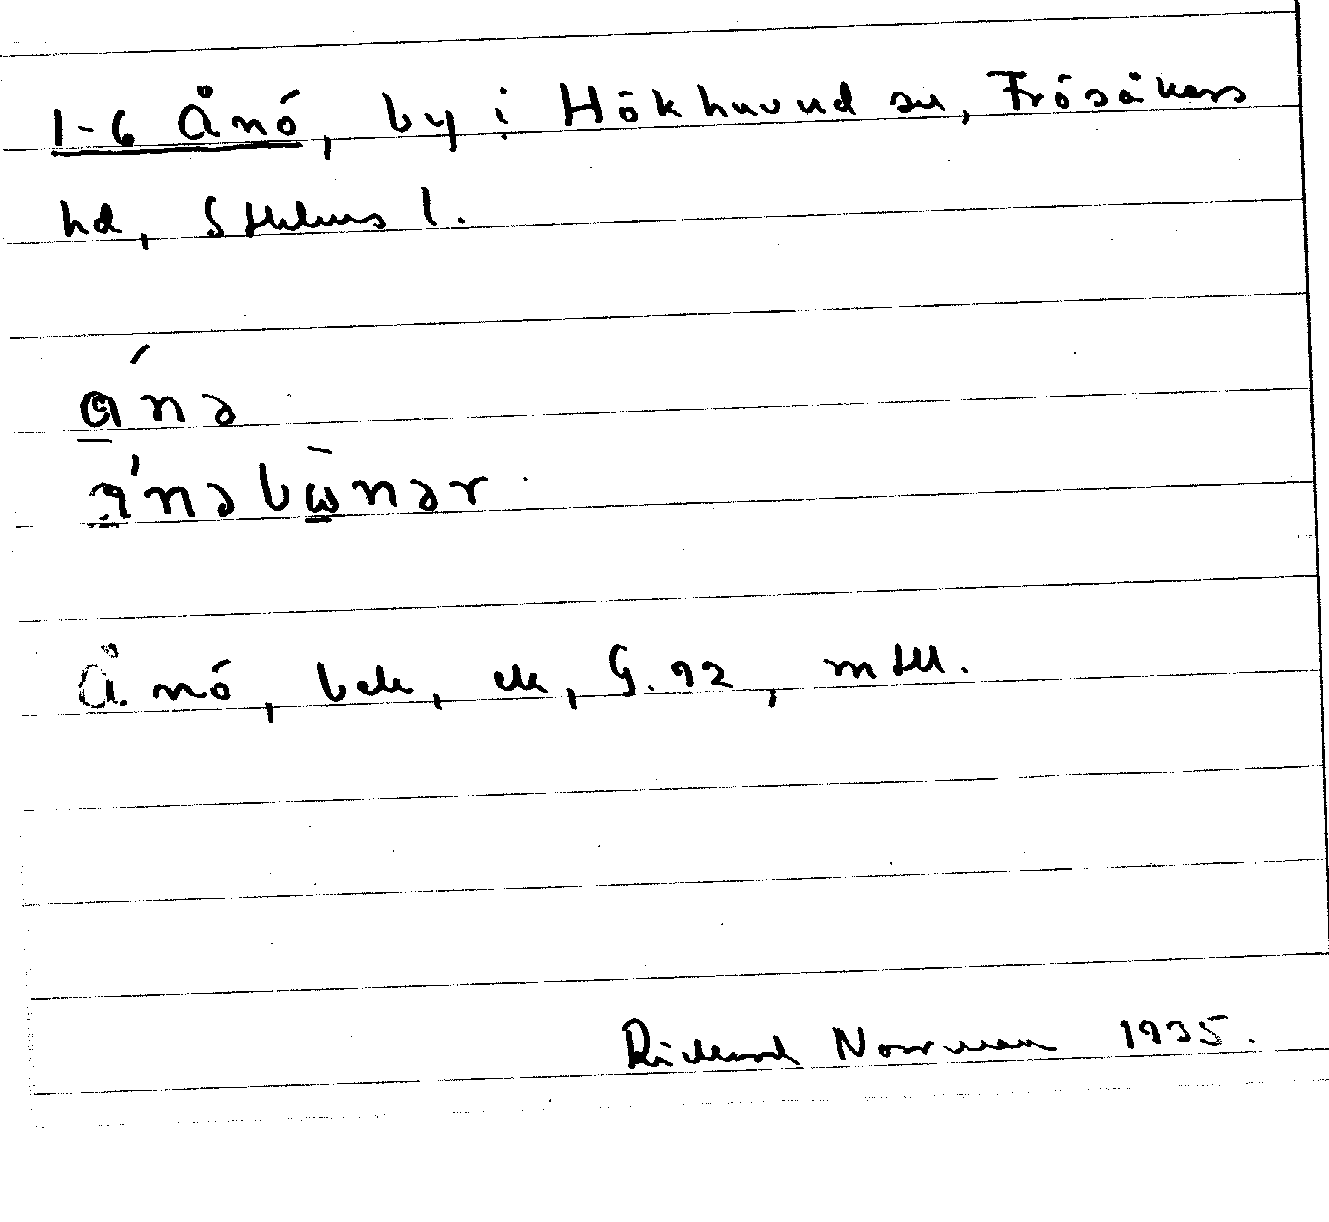 1-6 Ånö, by i Hökhuvud sn, Frösåkers
hd, Sthlms l.
ánə
ánəbɯ̀nər
Ånö, bek, ek, G. 92, mtll.
Rickard Norrman 1935.